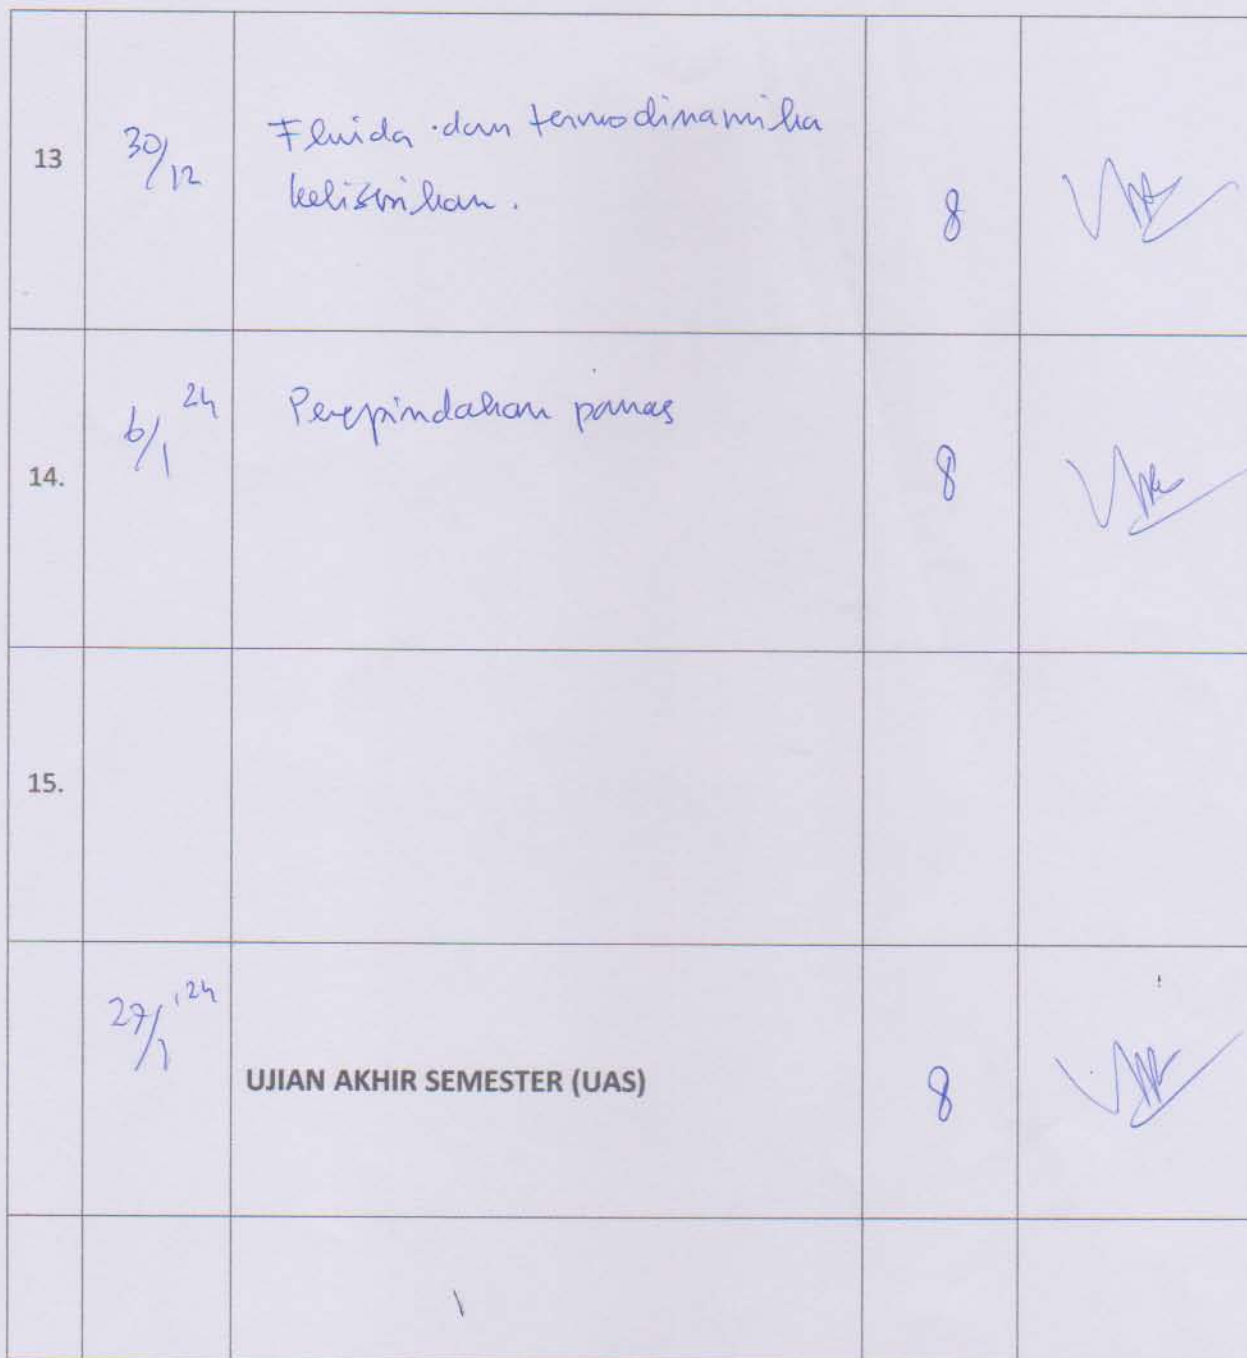 13
30/12
Fluida dan termodinamika
kelistrikan.
8
14.
6/1 24
Perpindahan panas
8
15.
27/1 '24
UJIAN AKHIR SEMESTER (UAS)
8